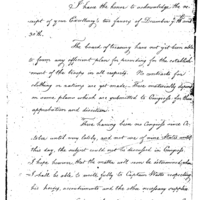 I have the honor to acknowledge the re-
ceipt of your Excellency's two favors of December 9th and
30th.
The board of treasury have not yet been able
to form any efficient plan for providing for the establish-
ment of the troops in all respects. No contracts for
clothing or rations are yet made. There materially depend
on some plans which are submitted to Congress for their
approbation and direction.
There having been no Congress since Oc-
tober until very lately, and not one of nine States until
this day, the subject could not be decided in Congress.
I hope however, that the matter will now be determined, when
I shall be able to write fully to Captain State respecting
his huts, accoutrements and the other necessary supplies